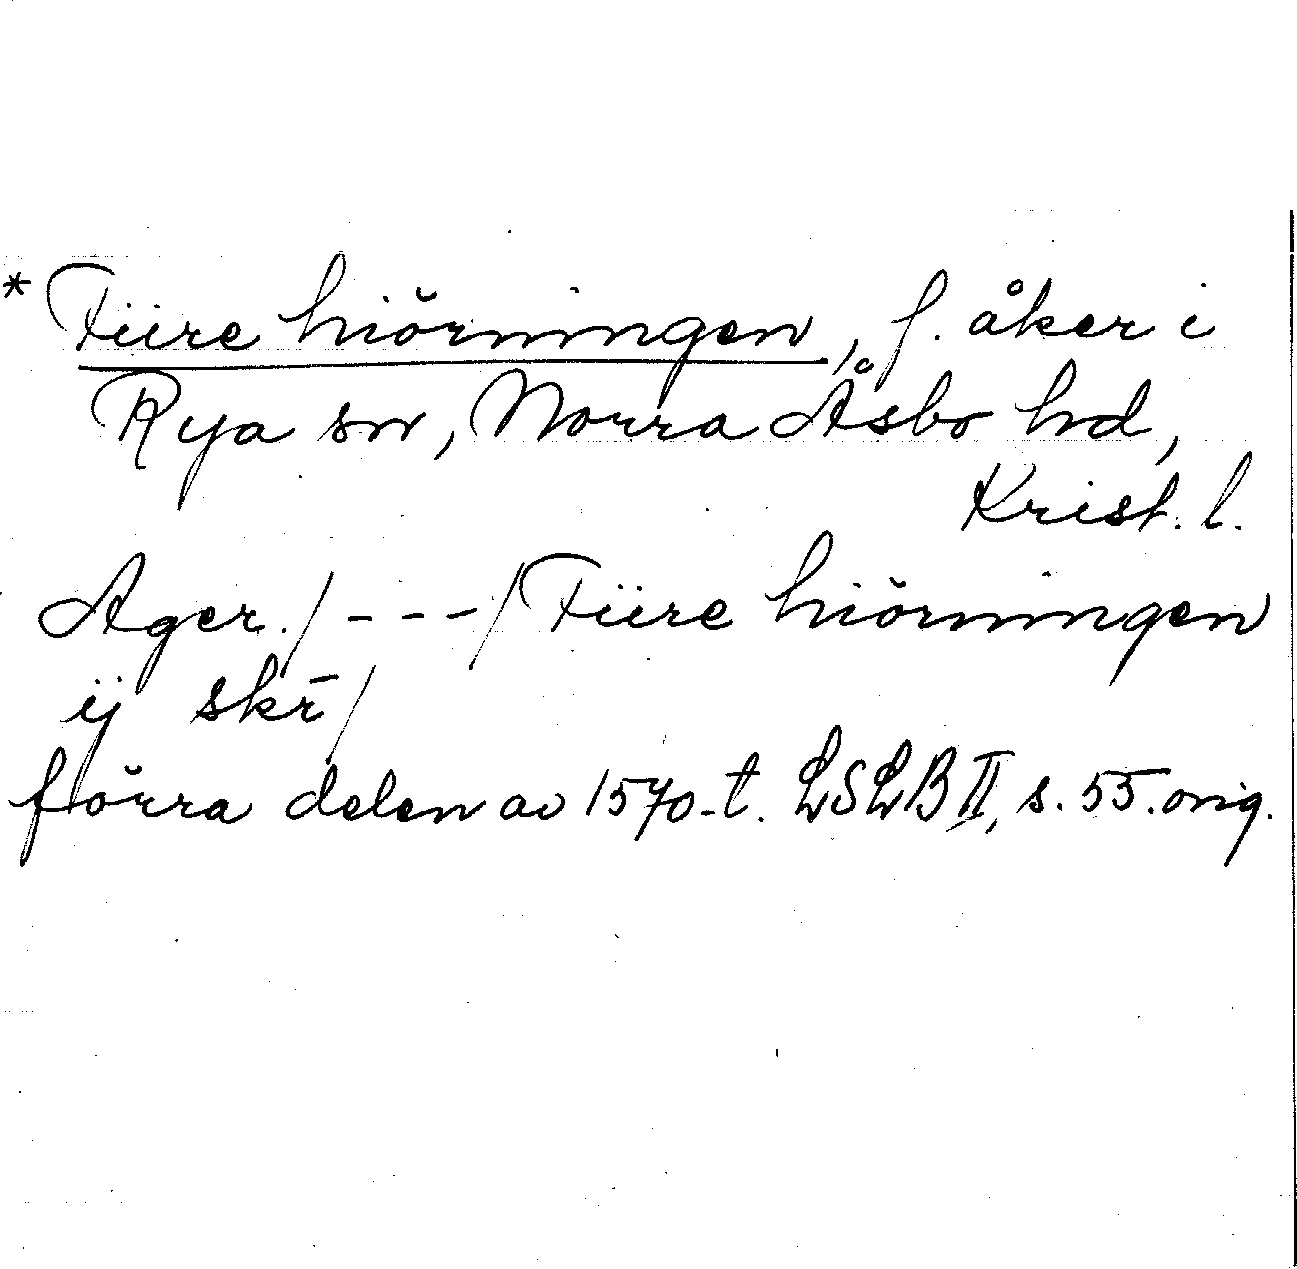 * Fiire hiörningen, f. åker i
Rya sn, Norra Åsbo hd,
Krist. l.
Ager. / - - - / Fiire hiörningen
ij skr̄ /
förra delen av 1570-t. LSLB II, s. 55. orig.